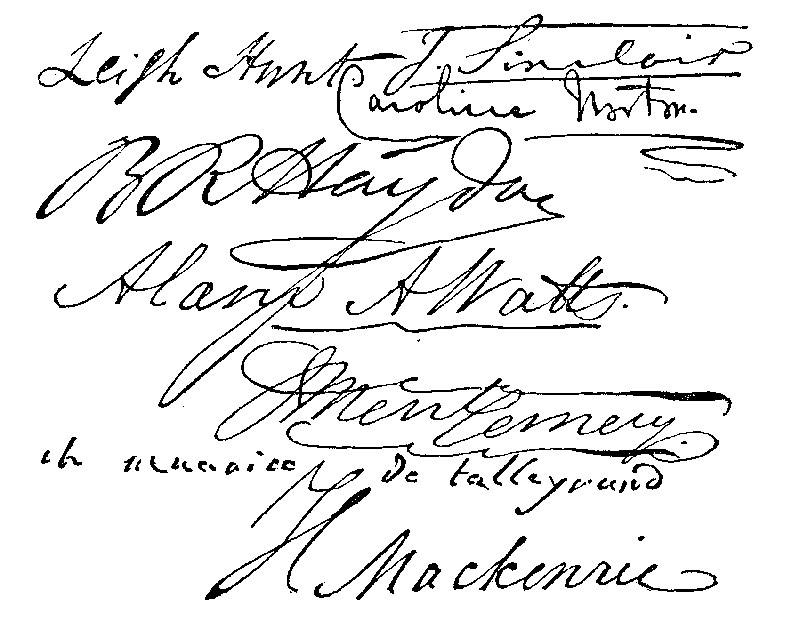 Leigh Hunt J. Sinclair
Caroline Norton.
B R Haydon
Alaric A Watts.
J Montgomery.
ch maurice de talleyrand
H Mackenzie